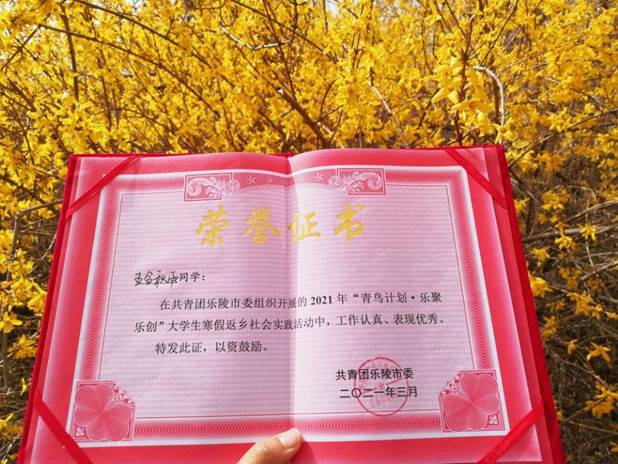 荣誉证书
同学:
在共青团乐陵市委组织开展的2021年“青鸟计划·乐聚
乐创”大学生寒假返乡社会实践活动中,工作认真、表现优秀。
特发此证,以资鼓励。
共青团乐陵市委
二〇二一年三月